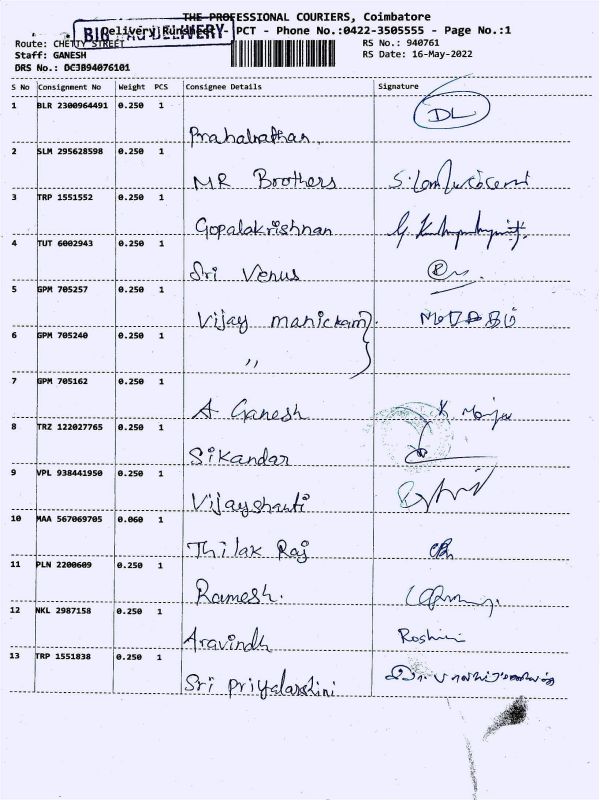 THE PROFESSIONAL COURIERS, Coimbatore
Delivery Runsheet - PCT - Phone No.:0422-3505555 - Page No.:1
DELIVERY
Route: CHETTY STREET RS No.: 940761
Staff: GANESH RS Date: 16-May-2022
DRS No.: DC3B94076101
S No Consignment No Weight PCS Consignee Details Signature
1 BLR 2300964491 0.250 1 Prahalnathan DL
2 SLM 295628598 0.250 1 MR Brothers
3 TRP 1551552 0.250 1 Gopalakrishnan
4 TUT 6002943 0.250 1 Sri Venus
5 GPM 705257 0.250 1 Vijay manickam
6 GPM 705240 0.250 1 〃
7 GPM 705162 0.250 1 A Ganesh
8 TRZ 122027765 0.250 1 Sikandar
9 VPL 938441950 0.250 1 Vijayshanti
10 MAA 567069705 0.060 1 Thilak Raj
11 PLN 2200609 0.250 1 Ramesh.
12 NKL 2987158 0.250 1 Aravindh Roshini
13 TRP 1551838 0.250 1 Sri Priyalarshini